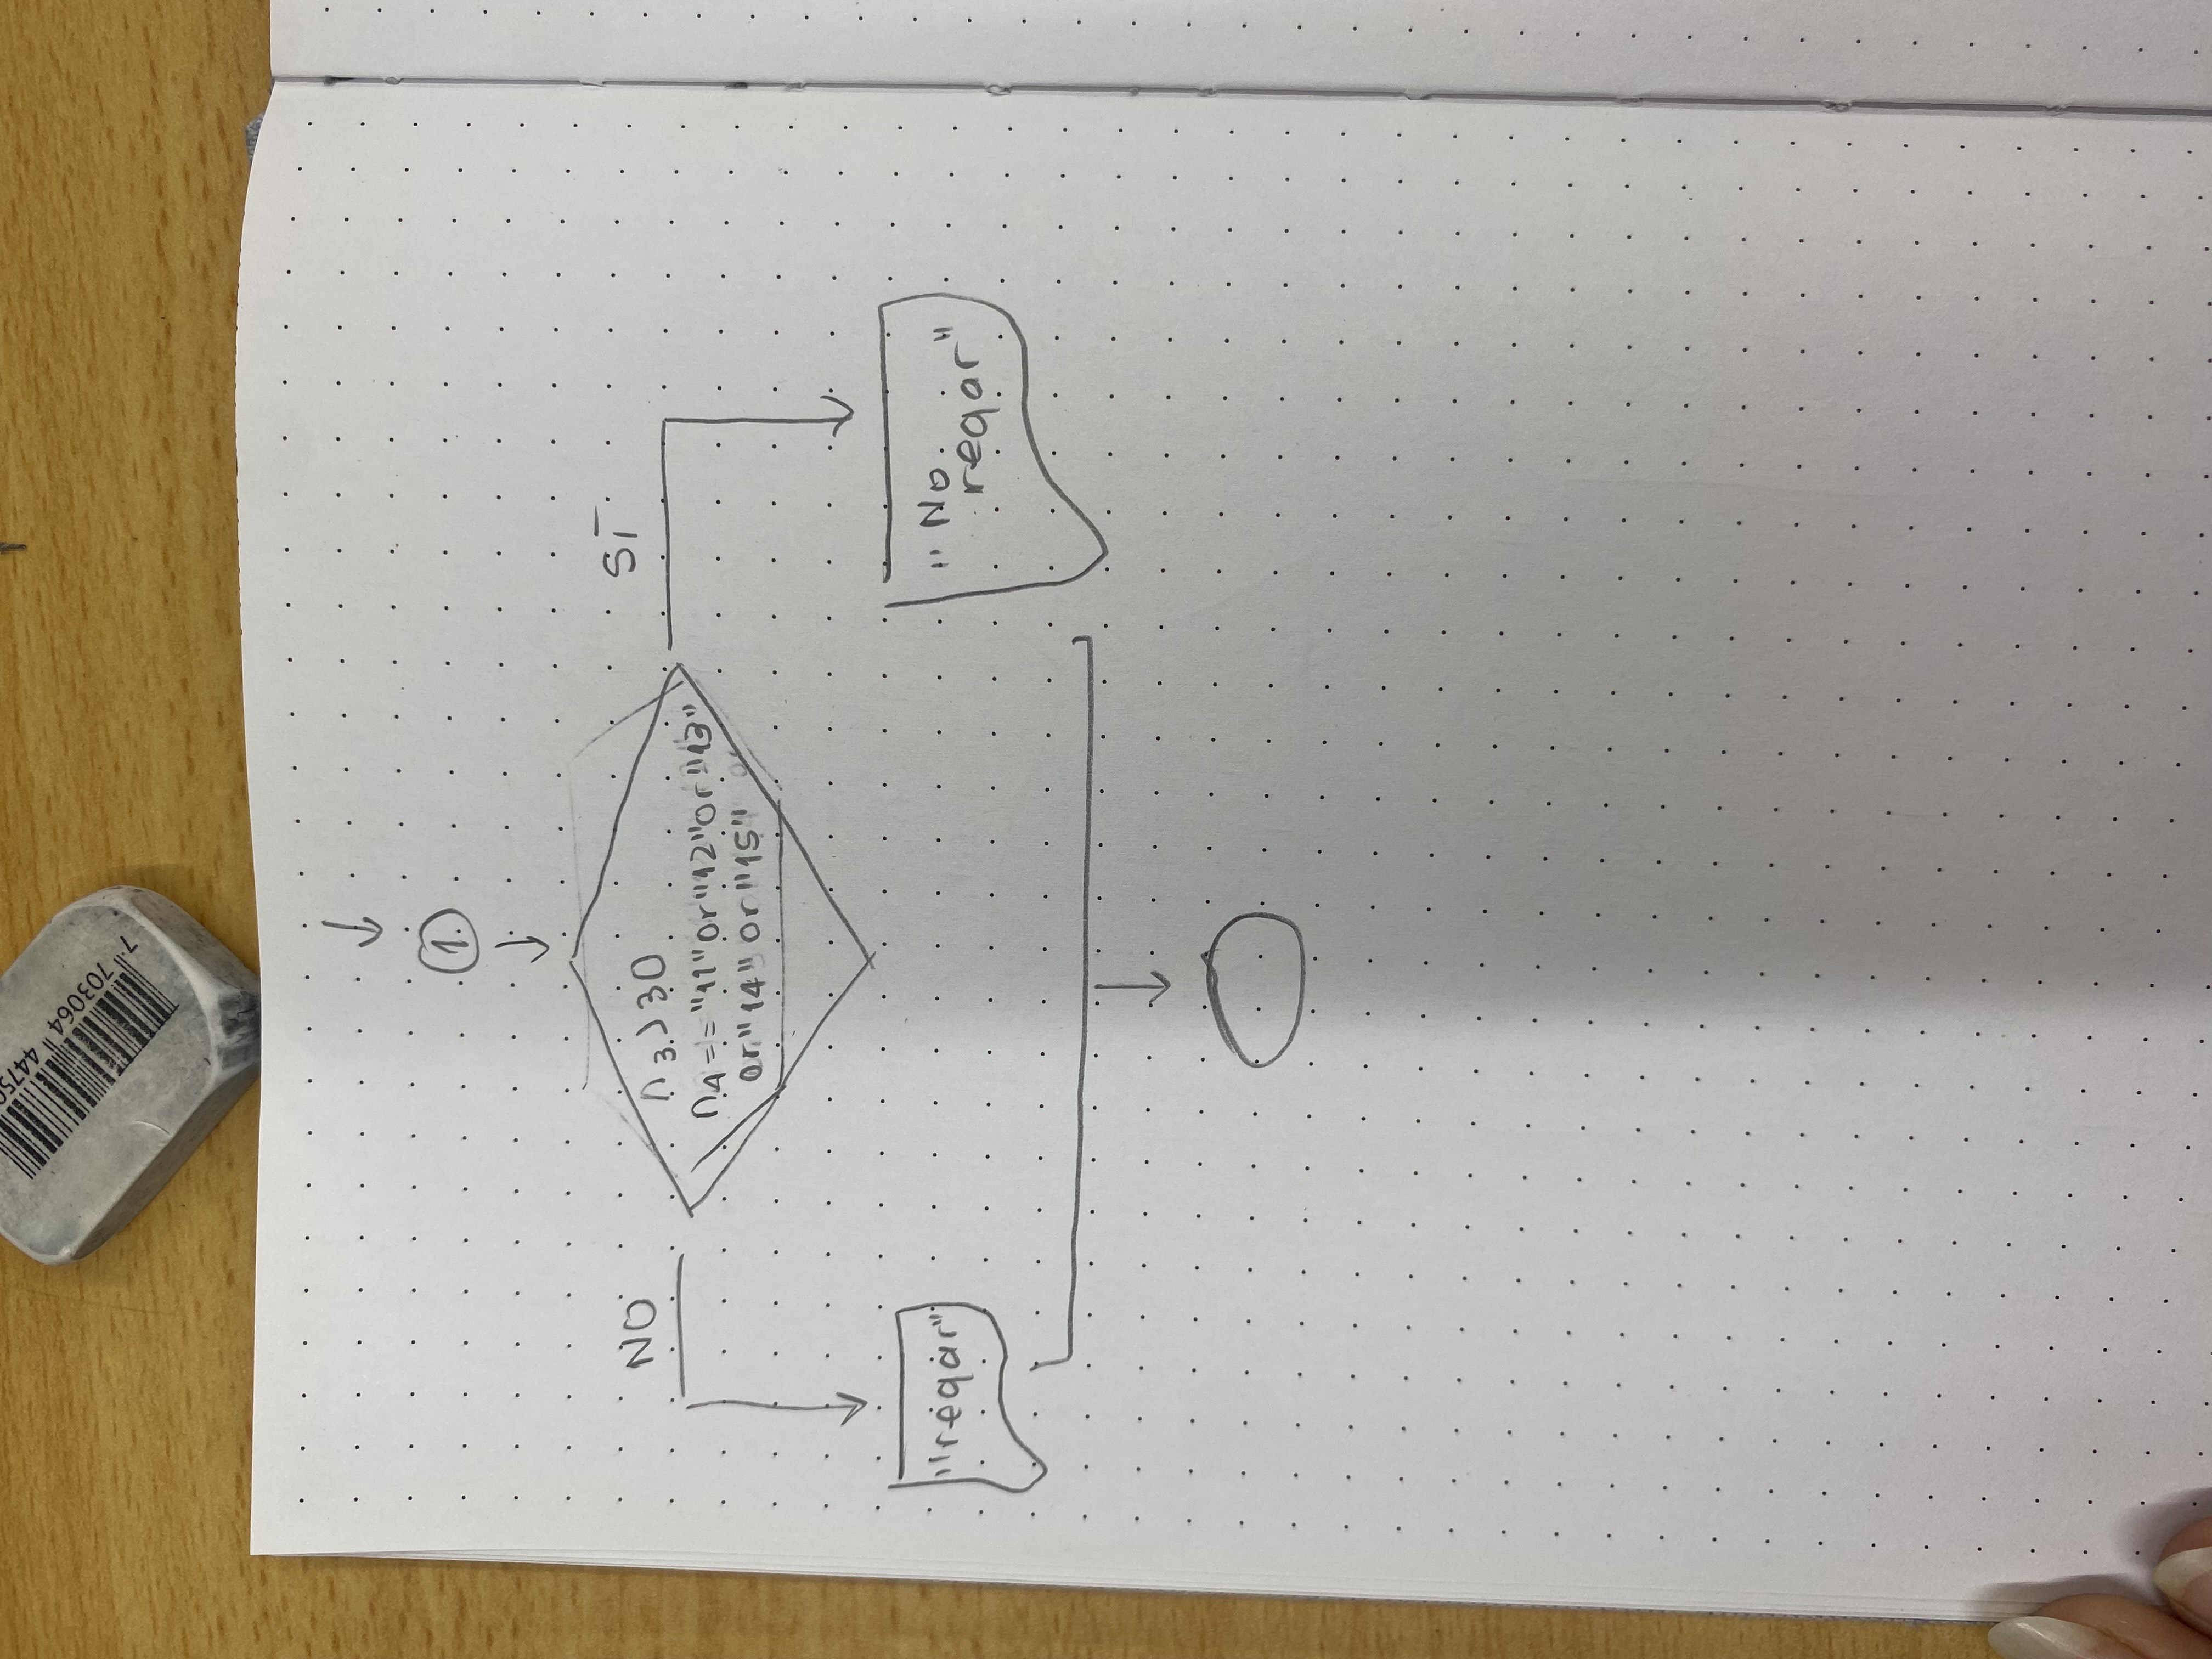 7 703064 44750
1.
NO
SI
n3>30
n4=="11"or"12"or"13"
or"14" or"15"
"regar"
"No
regar"